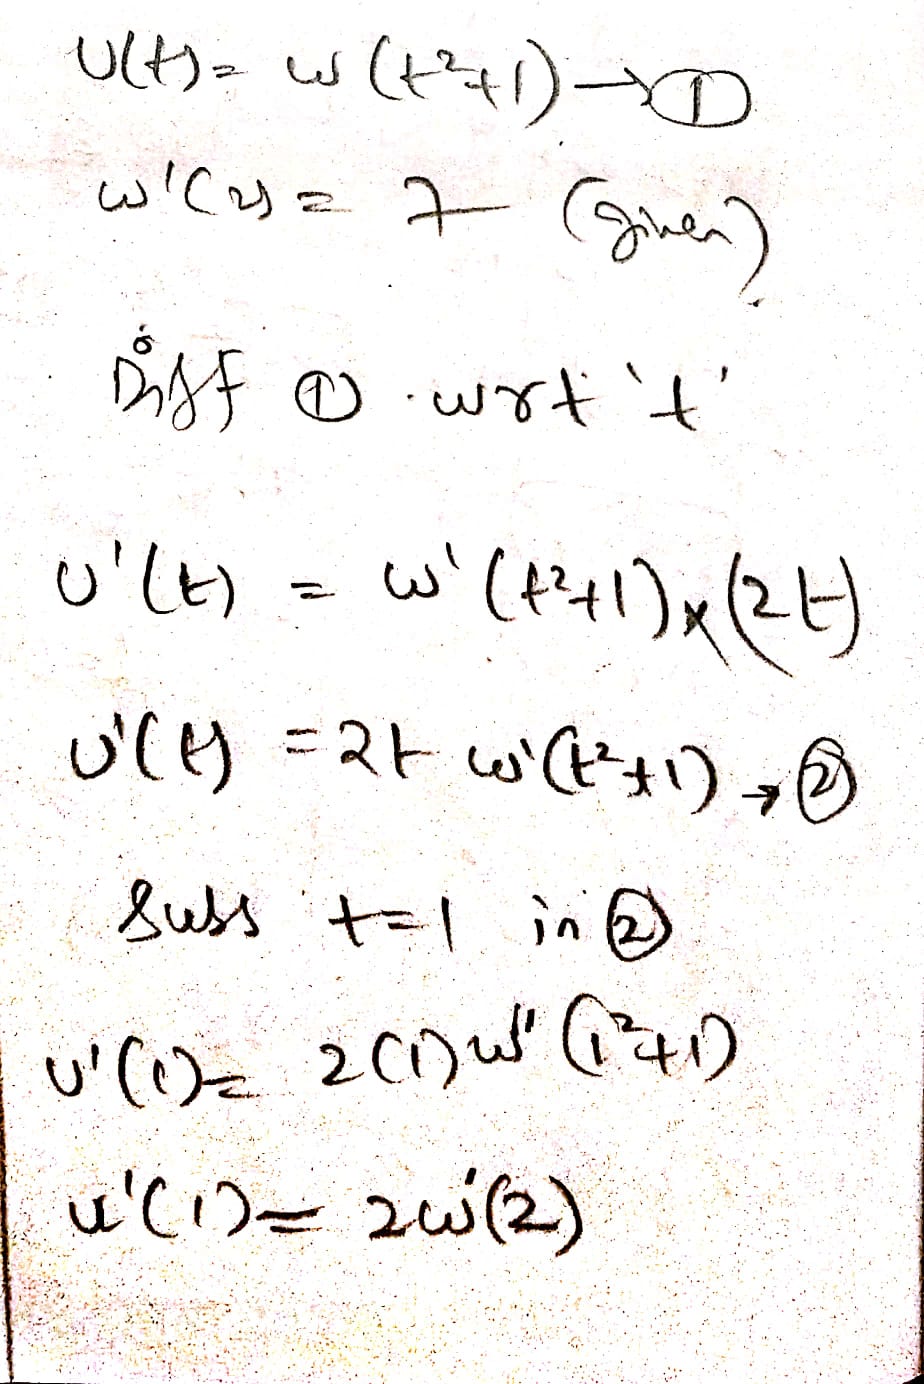 U(t) = w (t²+1) → ①
w'(2) = 7 (given)
Diff ① wrt 't'
U'(t) = w' (t²+1) x (2t)
U'(t) = 2t w'(t²+1) → ②
Subs t=1 in ②
U'(1) = 2(1) w' (1²+1)
u'(1) = 2w'(2)